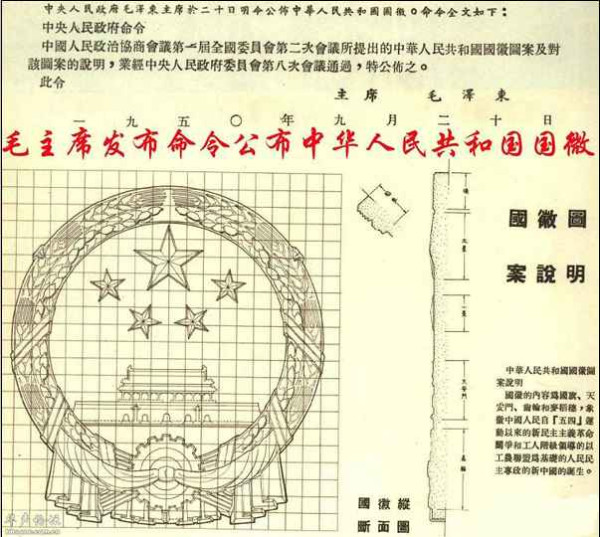 中央人民政府毛澤東主席於二十日明令公佈中華人民共和國國徽。命令全文如下：
中央人民政府命令
中國人民政治協商會議第一屆全國委員會第二次會議所提出的中華人民共和國國徽圖案及對
該圖案的說明，業經中央人民政府委員會第八次會議通過，特公佈之。
此令
主席 毛澤東
一九五〇年九月二十日
毛主席发布命令公布中华人民共和国国徽
國徽圖
案說明
中華人民共和國國徽圖
案說明
國徽的內容爲國旗、天
安門、齒輪和麥稻穗，象
徵中國人民自『五四』運
動以來的新民主主義革命
鬥爭和工人階級領導的以
工農聯盟爲基礎的人民民
主專政的新中國的誕生。
國徽縱
斷面圖